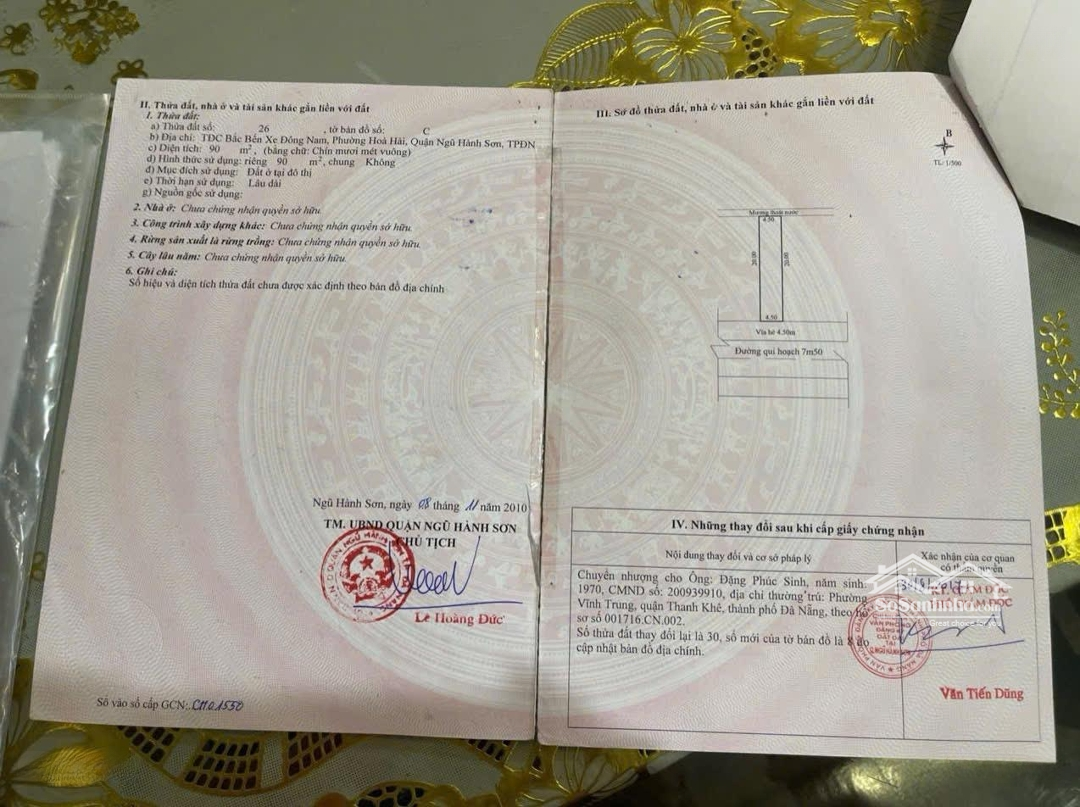 II. Thửa đất, nhà ở và tài sản khác gắn liền với đất
1. Thửa đất:
a) Thửa đất số: 26 , tờ bản đồ số: C
b) Địa chỉ: TĐC Bắc Bến Xe Đông Nam, Phường Hoà Hải, Quận Ngũ Hành Sơn, TPĐN
c) Diện tích: 90 m², (bằng chữ: Chín mươi mét vuông)
d) Hình thức sử dụng: riêng 90 m², chung Không
đ) Mục đích sử dụng: Đất ở tại đô thị
e) Thời hạn sử dụng: Lâu dài
g) Nguồn gốc sử dụng:
2. Nhà ở: Chưa chứng nhận quyền sở hữu.
3. Công trình xây dựng khác: Chưa chứng nhận quyền sở hữu.
4. Rừng sản xuất là rừng trồng: Chưa chứng nhận quyền sở hữu.
5. Cây lâu năm: Chưa chứng nhận quyền sở hữu.
6. Ghi chú:
Số hiệu và diện tích thửa đất chưa được xác định theo bản đồ địa chính
Ngũ Hành Sơn, ngày 08 tháng 11 năm 2010
TM. UBND QUẬN NGŨ HÀNH SƠN
CHỦ TỊCH
Lê Hoàng Đức
Số vào sổ cấp GCN: CH01550
III. Sơ đồ thửa đất, nhà ở và tài sản khác gắn liền với đất
B
TL: 1/500
Mương thoát nước
4.50
20.00
20.00
4.50
Vỉa hè 4.50m
Đường qui hoạch 7m50
IV. Những thay đổi sau khi cấp giấy chứng nhận
Nội dung thay đổi và cơ sở pháp lý
Xác nhận của cơ quan
có thẩm quyền
Chuyển nhượng cho Ông: Đặng Phúc Sinh, năm sinh:
1970, CMND số: 200939910, địa chỉ thường trú: Phường
Vĩnh Trung, quận Thanh Khê, thành phố Đà Nẵng, theo hồ
sơ số 001716.CN.002.
Số thửa đất thay đổi lại là 30, số mới của tờ bản đồ là 8 do
cập nhật bản đồ địa chính.
KT. GIÁM ĐỐC
SoSanhNha.com
Văn Tiến Dũng